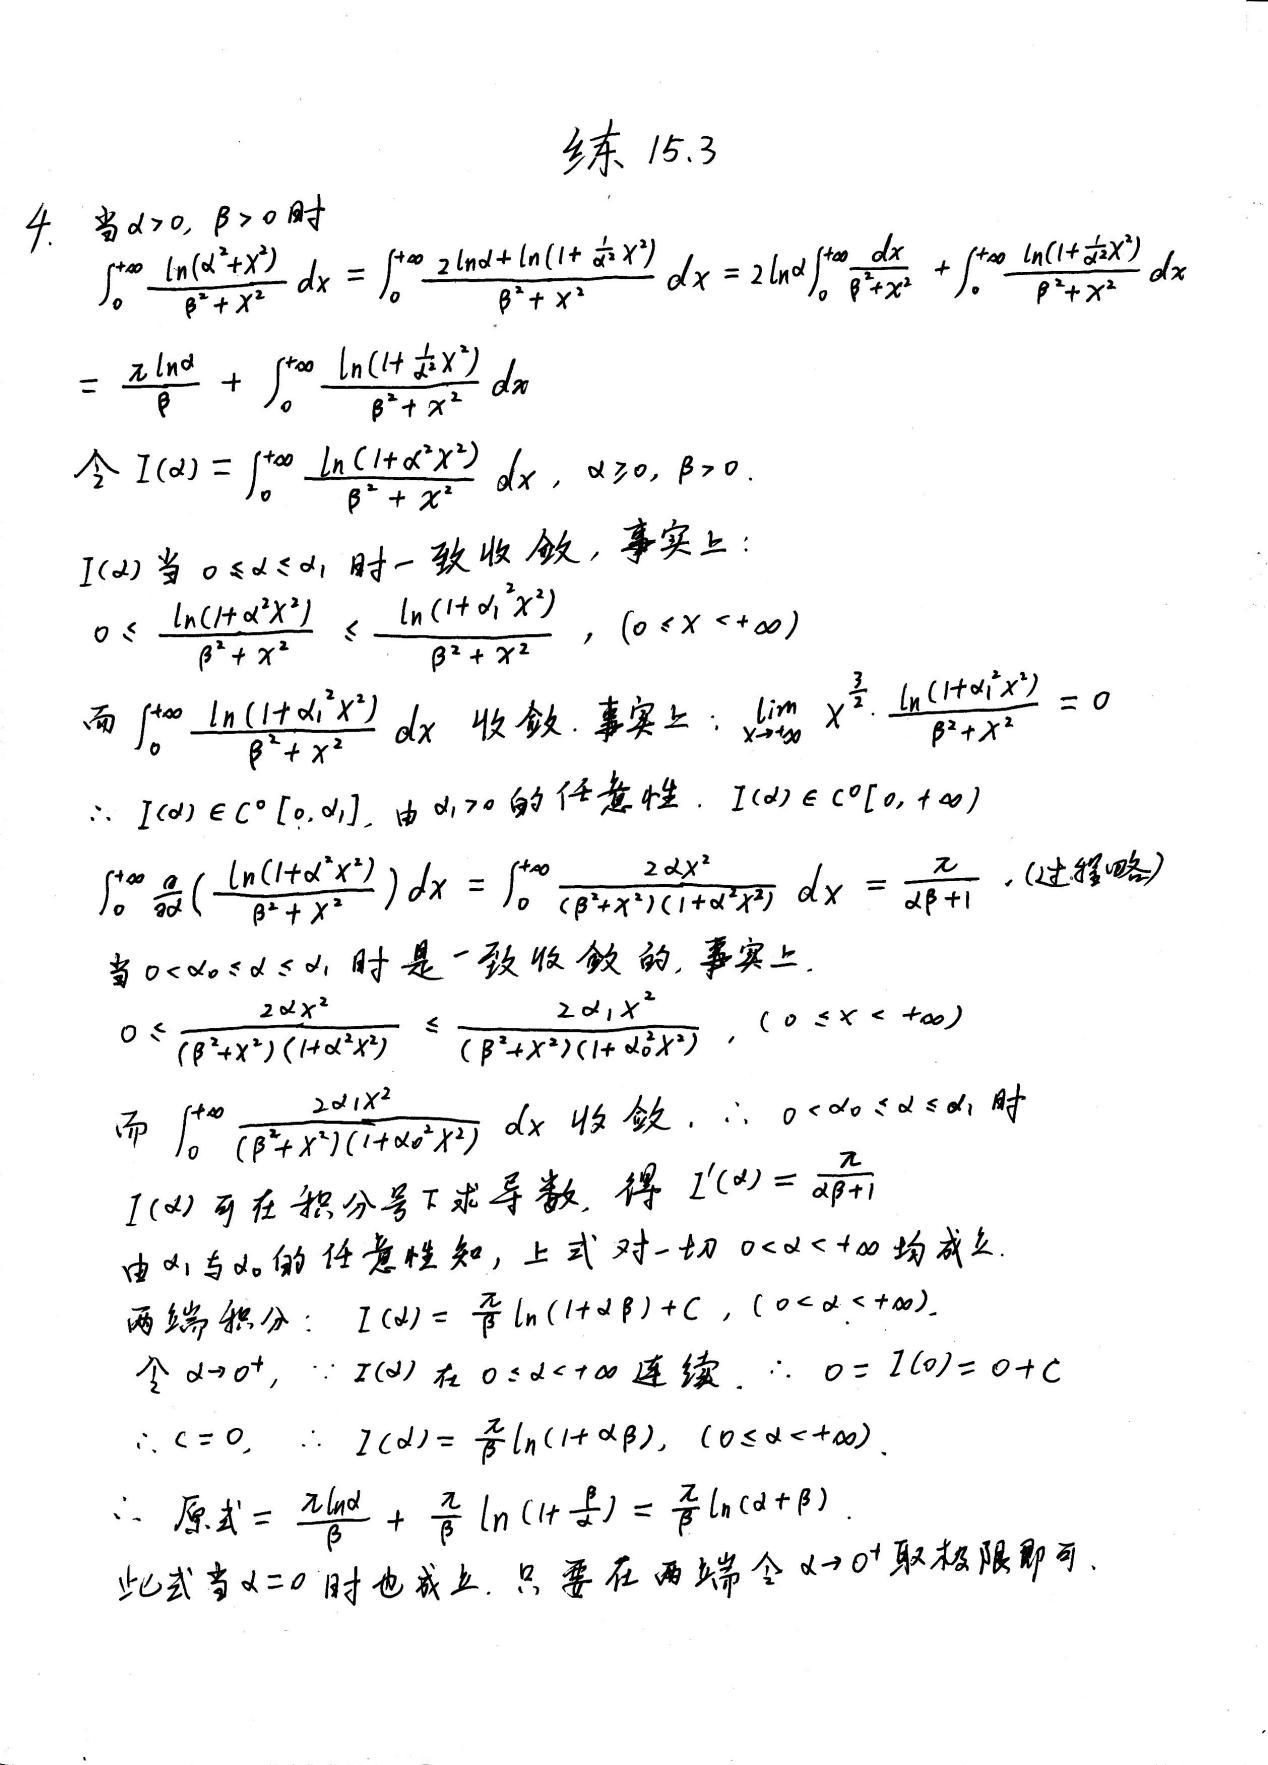 练 15.3
4. 当α>0, β>0时
∫₀^{+∞} ln(α²+x²)/(β²+x²) dx = ∫₀^{+∞} (2lnα+ln(1+(1/α²)x²))/(β²+x²) dx = 2lnα∫₀^{+∞} dx/(β²+x²) + ∫₀^{+∞} ln(1+(1/α²)x²)/(β²+x²) dx
= πlnα/β + ∫₀^{+∞} ln(1+(1/α²)x²)/(β²+x²) dx
令 I(α) = ∫₀^{+∞} ln(1+α²x²)/(β²+x²) dx, α≥0, β>0.
I(α)当 0≤α≤α₁ 时一致收敛, 事实上:
0 ≤ ln(1+α²x²)/(β²+x²) ≤ ln(1+α₁²x²)/(β²+x²), (0≤x<+∞)
而 ∫₀^{+∞} ln(1+α₁²x²)/(β²+x²) dx 收敛. 事实上: lim_{x→+∞} x^{3/2}·ln(1+α₁²x²)/(β²+x²) = 0
∴ I(α)∈C⁰[0,α₁], 由α₁>0的任意性. I(α)∈C⁰[0,+∞)
∫₀^{+∞} ∂/∂α(ln(1+α²x²)/(β²+x²))dx = ∫₀^{+∞} 2αx²/((β²+x²)(1+α²x²)) dx = π/(αβ+1). (过程略)
当0<α₀≤α≤α₁时是一致收敛的, 事实上.
0 ≤ 2αx²/((β²+x²)(1+α²x²)) ≤ 2α₁x²/((β²+x²)(1+α₀²x²)), (0≤x<+∞)
而 ∫₀^{+∞} 2α₁x²/((β²+x²)(1+α₀²x²)) dx 收敛. ∴ 0<α₀≤α≤α₁时
I(α)可在积分号下求导数, 得 I'(α) = π/(αβ+1)
由α₁与α₀的任意性知, 上式对一切 0<α<+∞均成立.
两端积分: I(α) = π/β ln(1+αβ)+C, (0<α<+∞).
令 α→0⁺, ∵ I(α)在 0≤α<+∞ 连续. ∴ 0=I(0)=0+C
∴ C=0, ∴ I(α) = π/β ln(1+αβ), (0≤α<+∞).
∴ 原式 = πlnα/β + π/β ln(1+β/α) = π/β ln(α+β).
此式当α=0时也成立. 只要在两端令α→0⁺取极限即可.